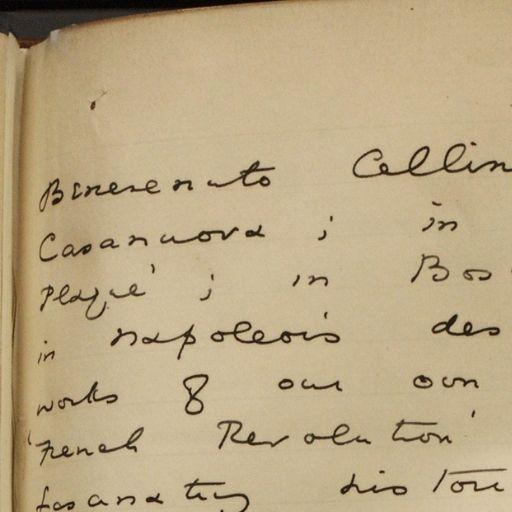 Benevenuto Cellin
Casanuova ; in
Plague' ; in Bos
in Napoleois des
works of our own
'French Revolution'
fasanatng histori